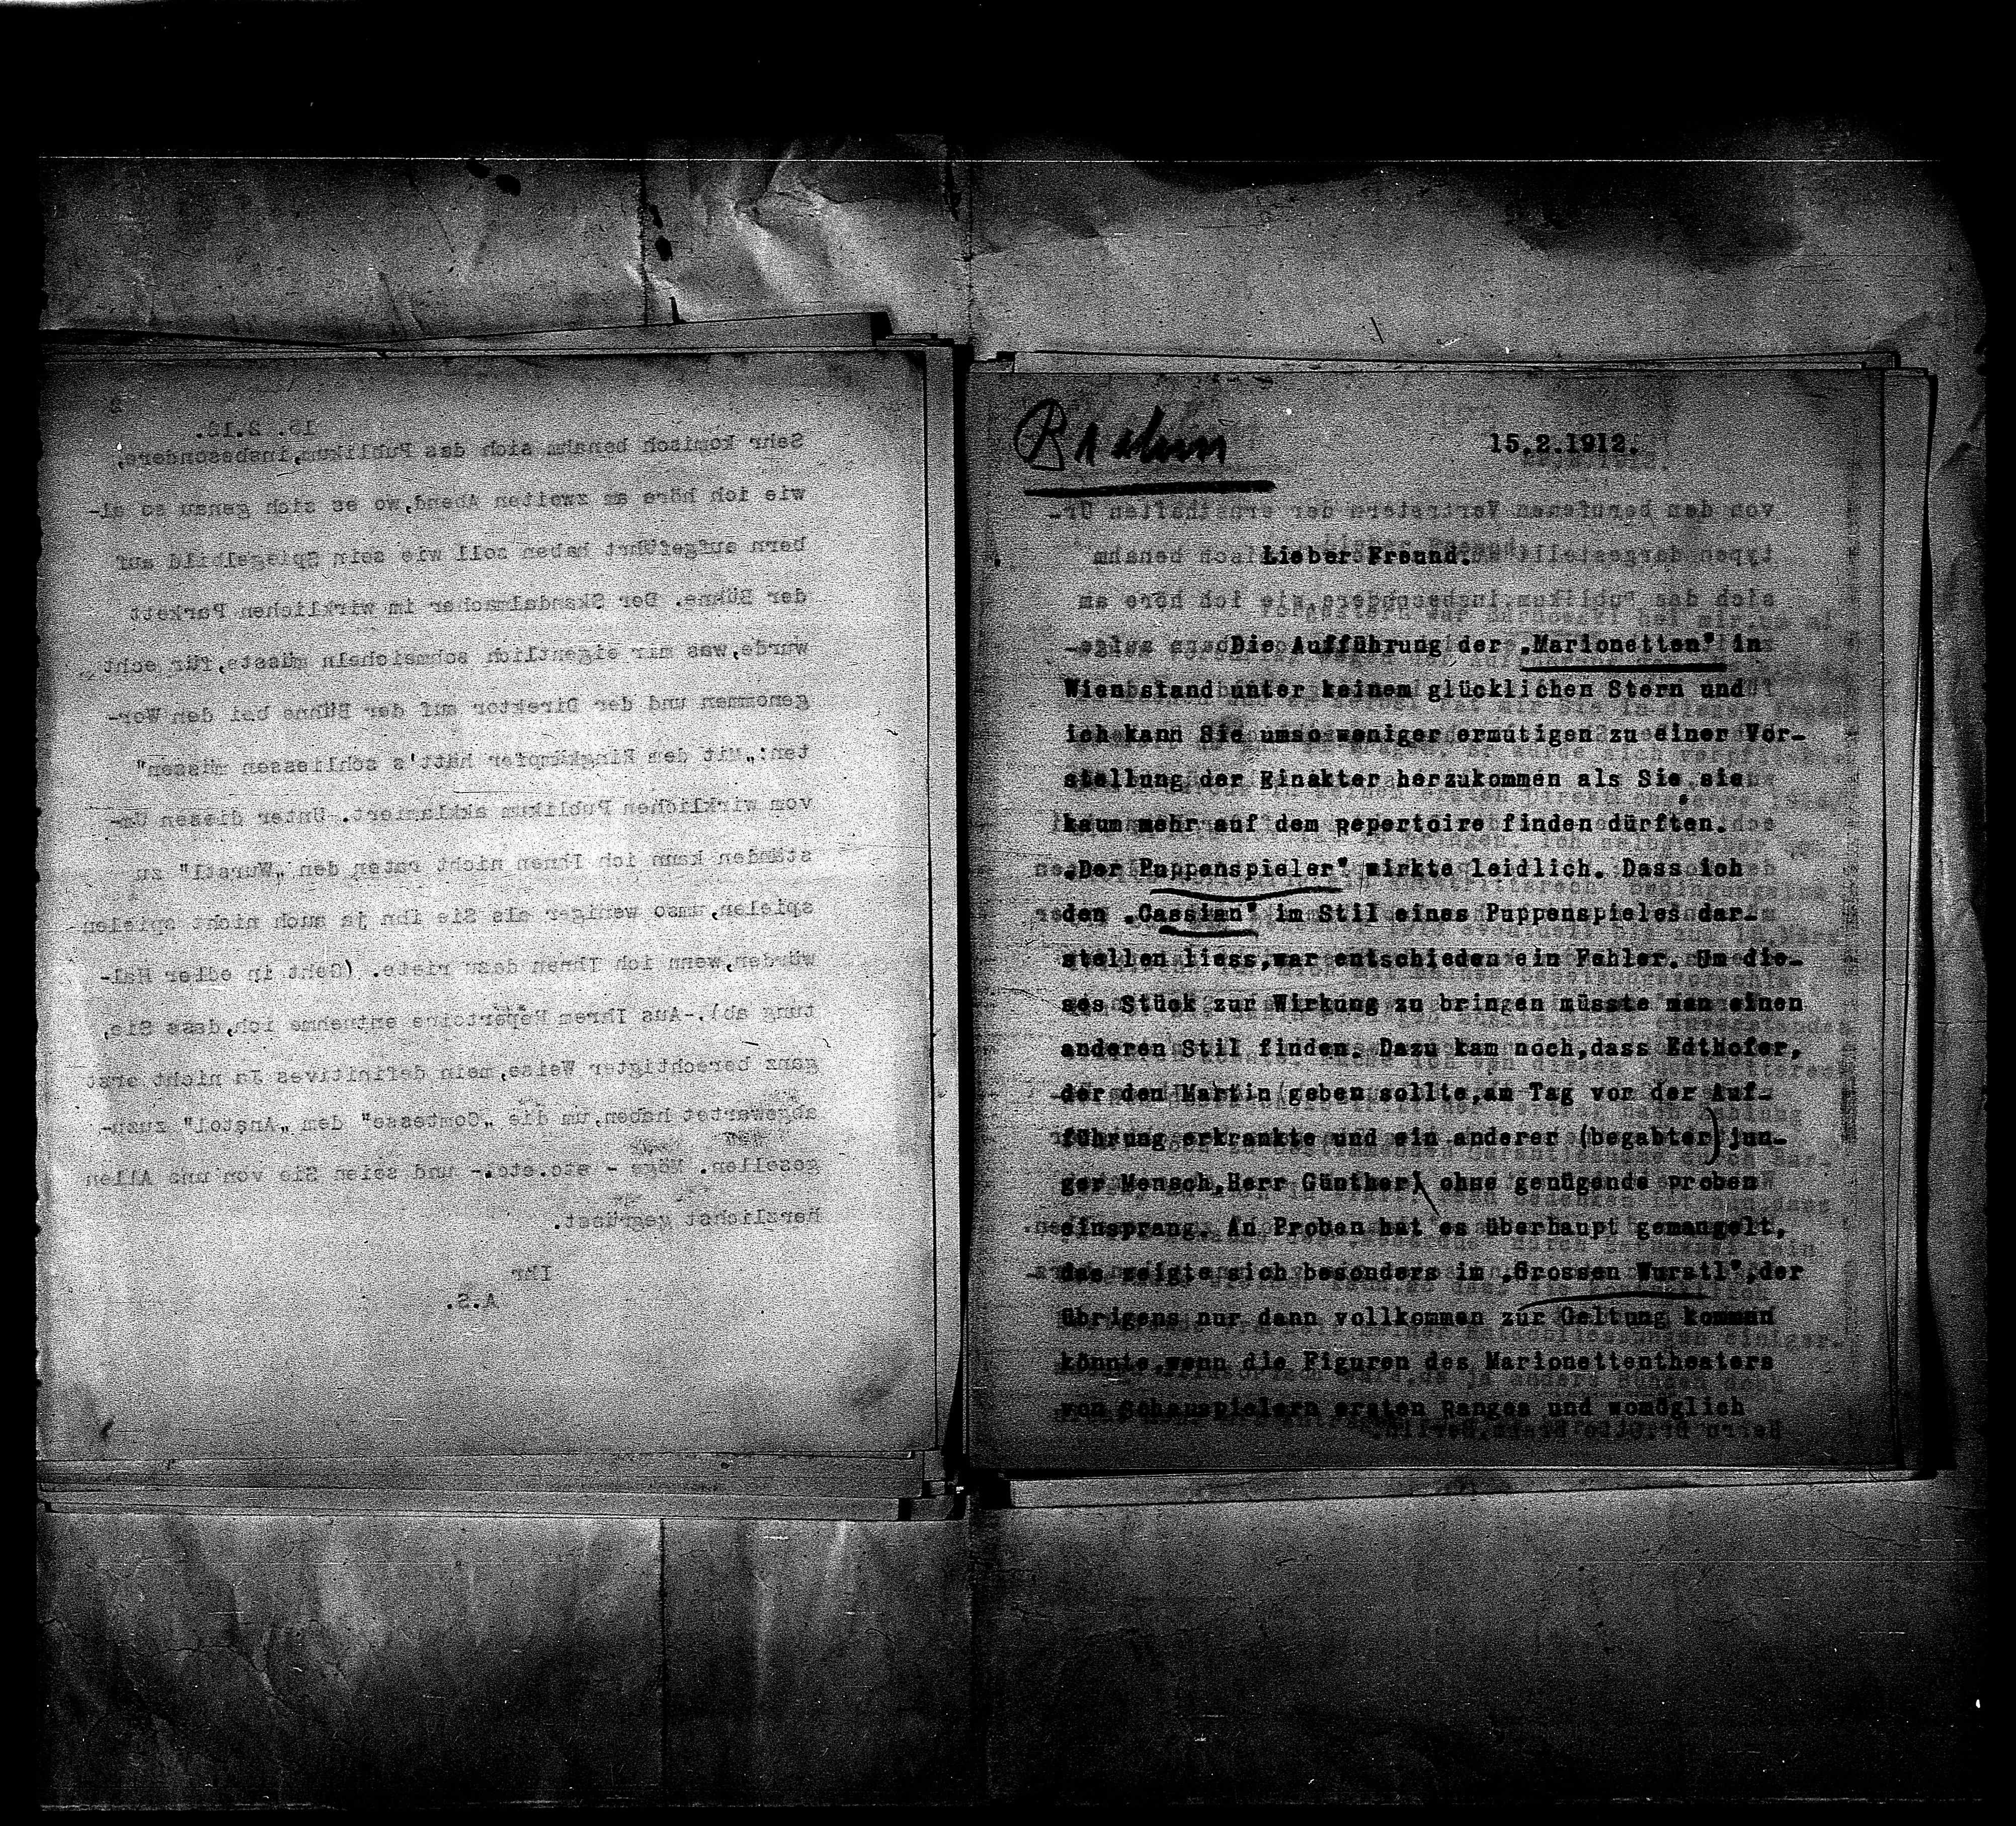 15. 2.12.
Sehr komisch benahm sich das Publikum,insbesondere,
wie ich höre am zweiten Abend,wo es sich genau so al-
bern aufgeführt haben soll wie sein Spiegelbild auf
der Bühne. Der Skandalmacher im wirklichen Parkett
wurde,was mir eigentlich schmeicheln müsste,für echt
genommen und der Direktor auf der Bühne bei den Wor-
ten:„Mit dem Ringkämpfer hätt's schliessen müssen"
vom wirklichen Publikum akklamiert. Unter diesen Um-
ständen kann ich Ihnen nicht raten den „Wurstl" zu
spielen,umso weniger als Sie ihn ja auch nicht spielen
würden,wenn ich Ihnen dazu riete. (Geht in edler Hal-
tung ab).-Aus Ihrem Repertoire entnehme ich,dass Sie,
ganz berechtigter Weise,mein definitives Ja nicht erst
abgewartet haben,um die „Comtesse" dem „Anatol" zuzu-
gesellen. Möge - etc.etc.- und seien Sie von uns Allen
herzlichst gegrüsst.
Ihr
A.S.
Brahm
15.2.1912.
Lieber Freund.
Die Aufführung der „Marionetten" in
Wien stand unter keinem glücklichen Stern und
ich kann Sie umso weniger ermutigen zu einer Vor-
stellung der Einakter herzukommen als Sie sie
kaum mehr auf dem Repertoire finden dürften.
„Der Puppenspieler" wirkte leidlich. Dass ich
den „Cassian" im Stil eines Puppenspieles dar-
stellen liess,war entschieden ein Fehler. Um die-
ses Stück zur Wirkung zu bringen müsste man einen
anderen Stil finden. Dazu kam noch,dass Edthofer,
der den Martin geben sollte,am Tag vor der Auf-
führung erkrankte und ein anderer (begabter) jun-
ger Mensch,Herr Günther, ohne genügende Proben
einsprang. An Proben hat es überhaupt gemangelt,
das zeigte sich besonders im „Grossen Wurstl",der
übrigens nur dann vollkommen zur Geltung kommen
könnte,wenn die Figuren des Marionettentheaters
von Schauspielern ersten Ranges und womöglich
von den berufenen Vertretern der ernsthaften Ur-